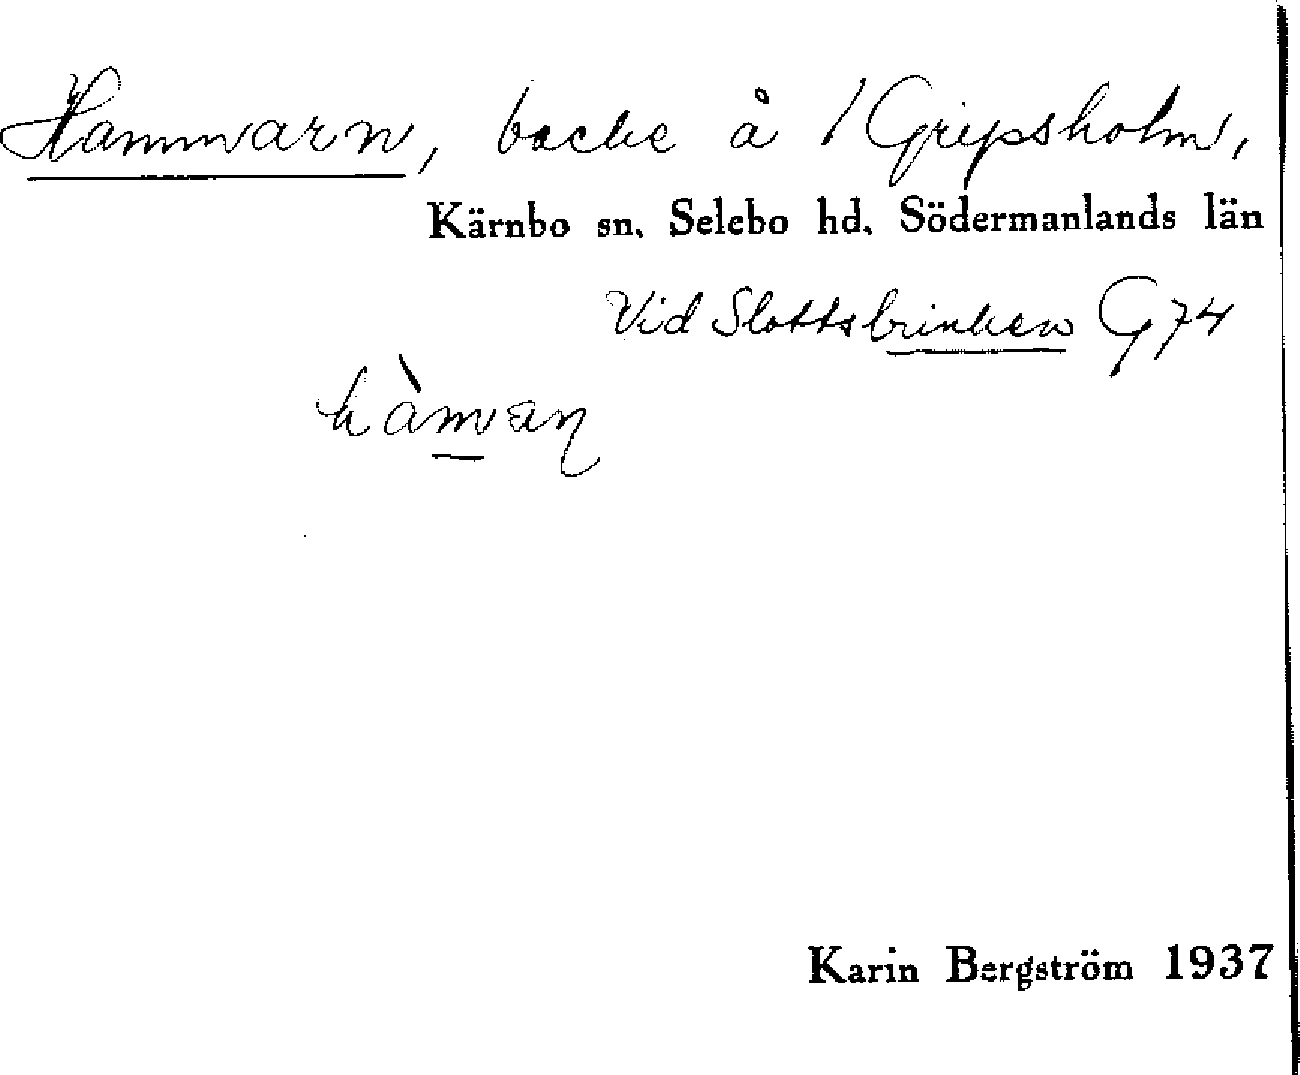 Hammarn, backe å /Gripsholm,
Kärnbo sn. Selebo hd. Södermanlands län
Vid Slottsbrinken G74
hàmvaṇ
Karin Bergström 1937